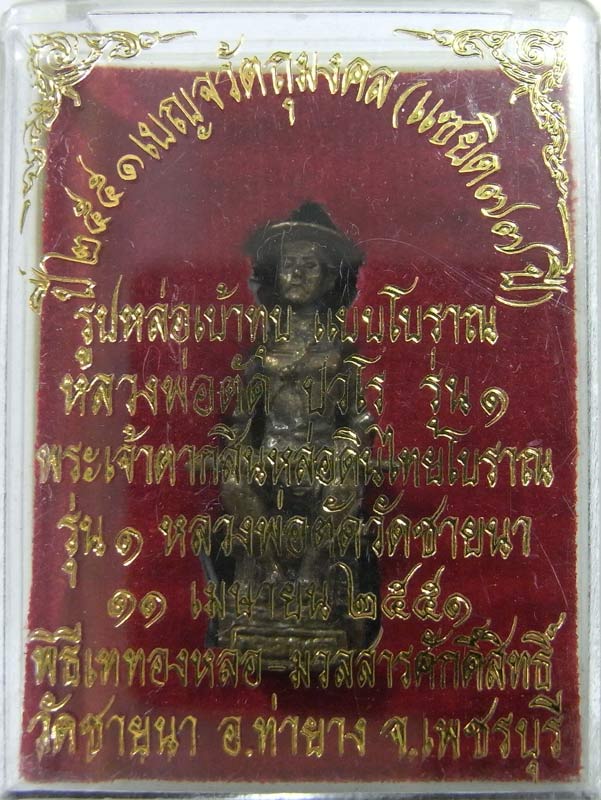 ปี ๒๕๕๑ เบญจวัตถุมงคล (แซยิด ๗๗ ปี)
รูปหล่อเบ้าทุบ แบบโบราณ
หลวงพ่อตัด ปวโร รุ่น ๑
พระเจ้าตากสินหล่อดินไทยโบราณ
รุ่น ๑ หลวงพ่อตัดวัดชายนา
๑๑ เมษายน ๒๕๕๑
พิธีเททองหล่อ-มวลสารศักดิ์สิทธิ์
วัดชายนา อ.ท่ายาง จ.เพชรบุรี